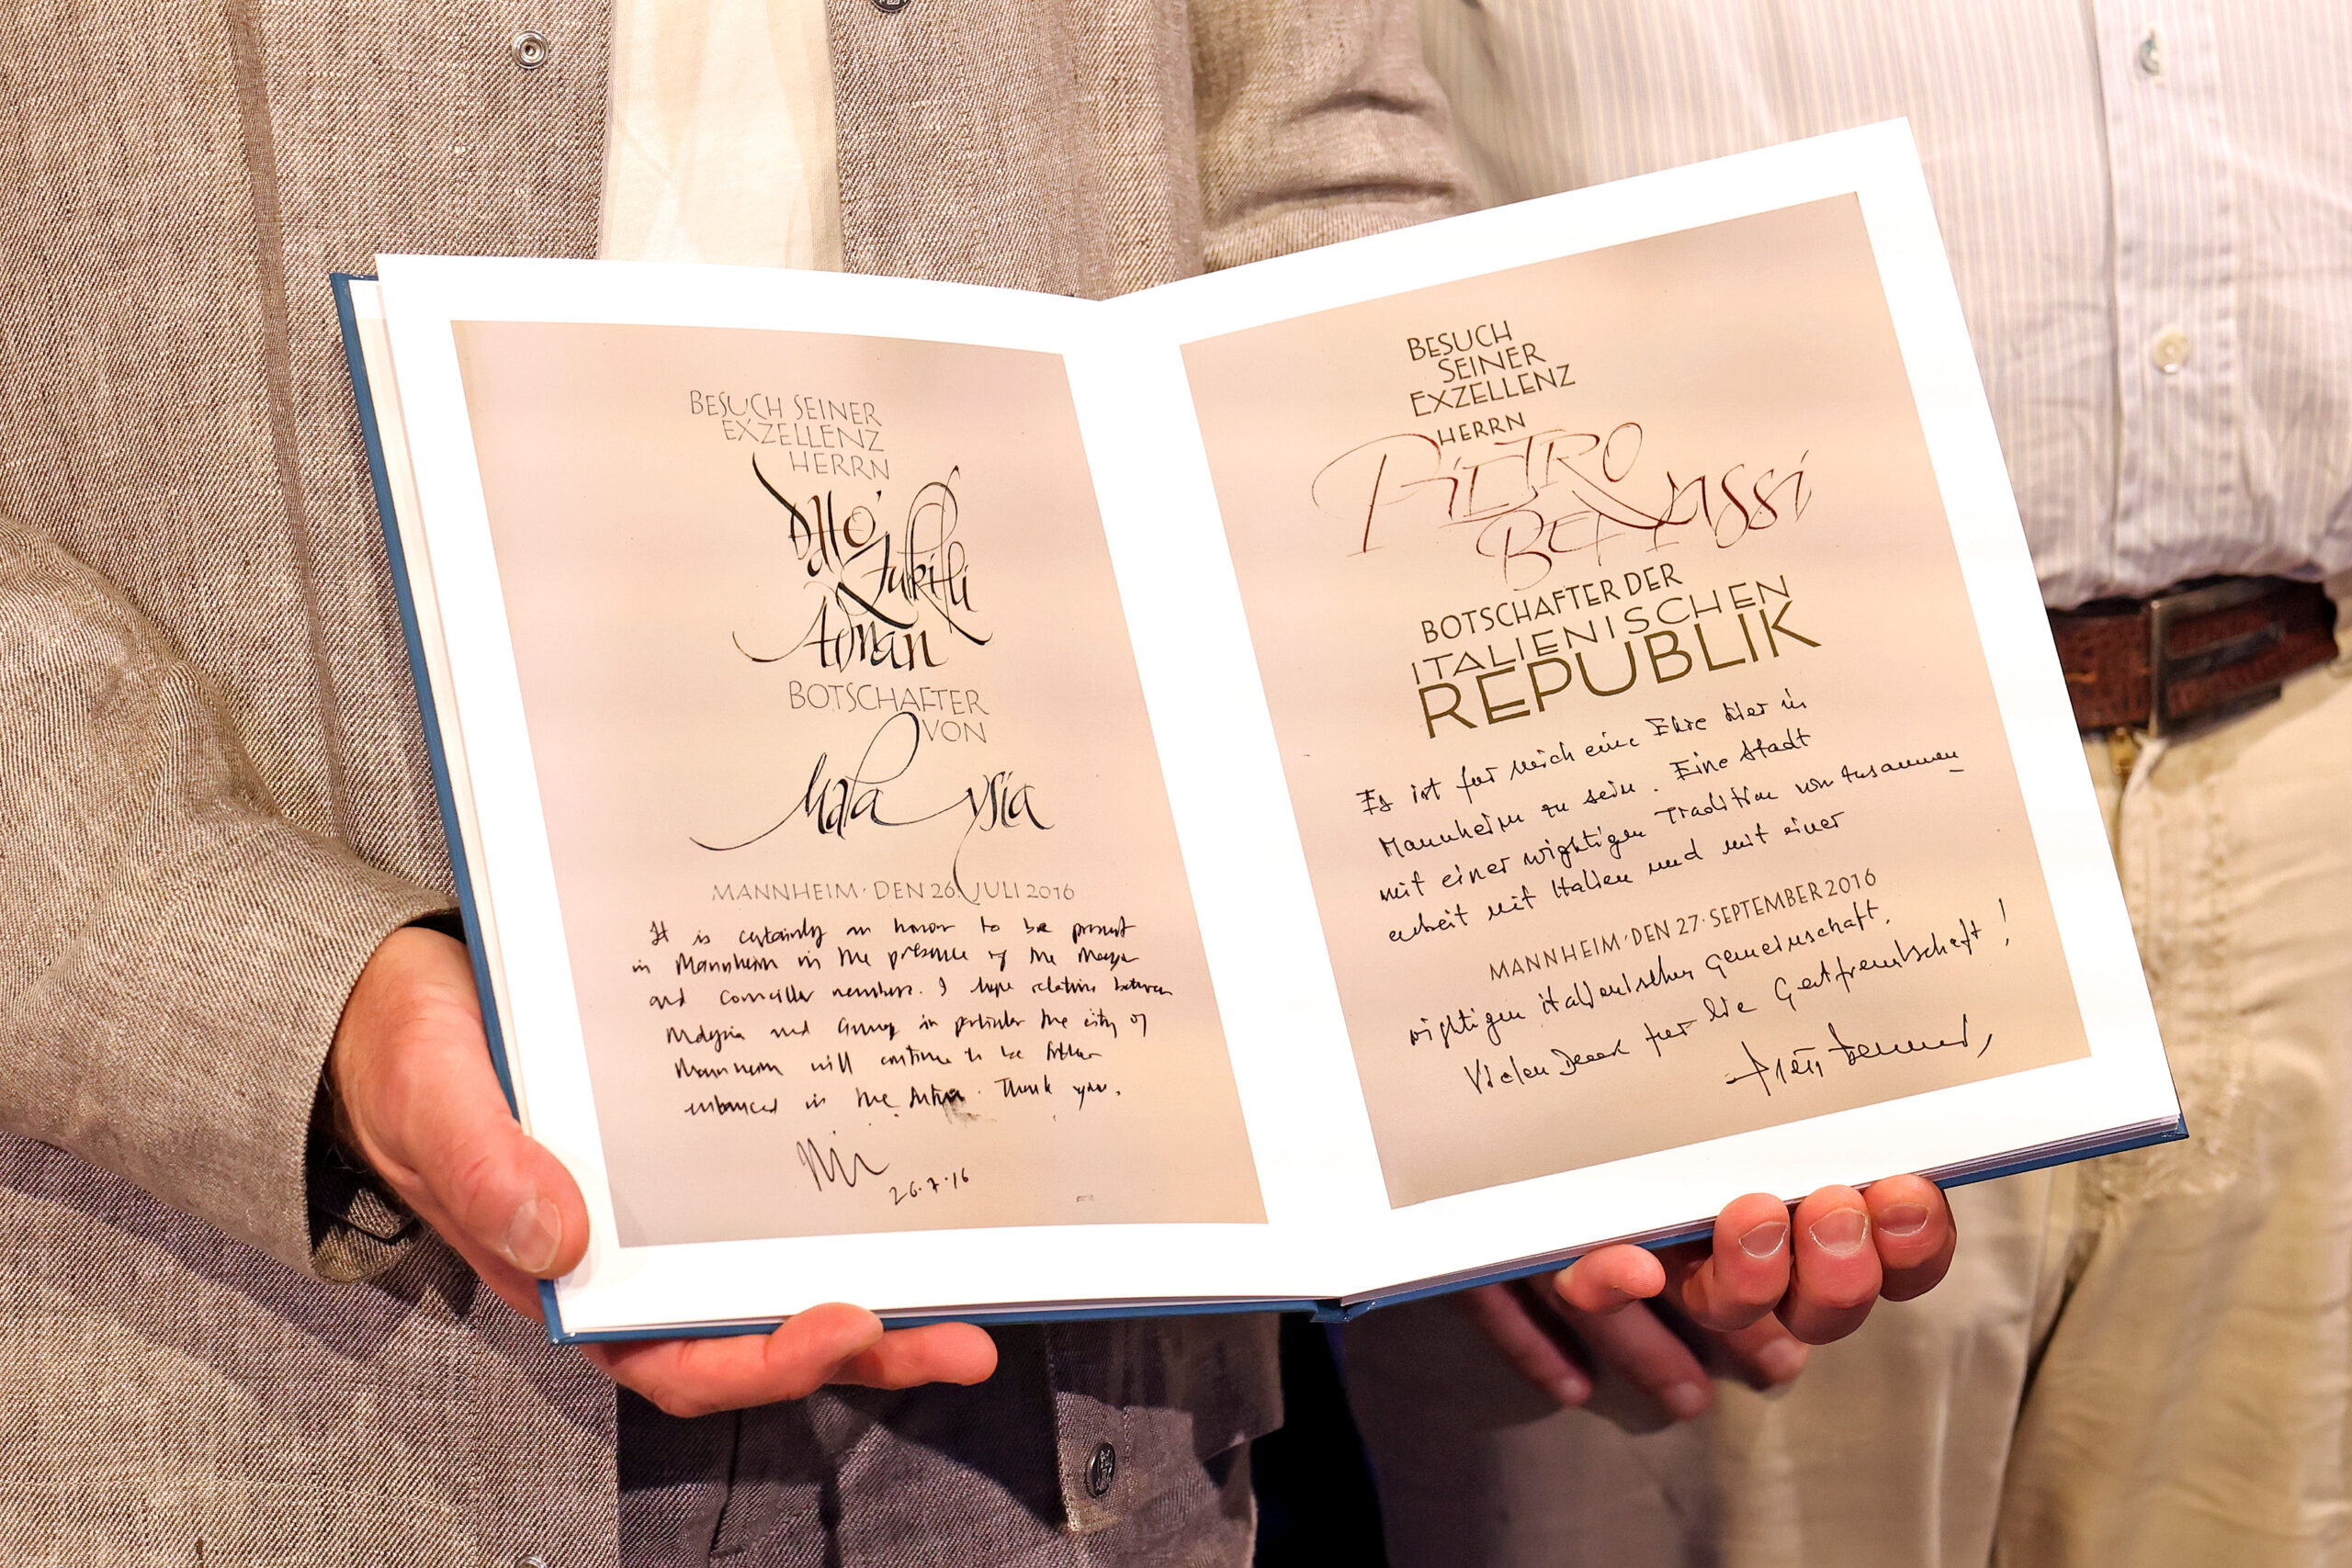 BESUCH SEINER
EXZELLENZ
HERRN
Dato'
Zulkifli
Adnan
BOTSCHAFTER
VON
Malaysia
MANNHEIM · DEN 26. JULI 2016
It is certainly an honor to be present
in Mannheim in the presence of the Mayor
and Councillor members. I hope relations between
Malaysia and Germany in particular the city of
Mannheim will continue to be further
enhanced in the future. Thank you.
26.7.16
BESUCH
SEINER
EXZELLENZ
HERRN
PIETRO
BENASSI
BOTSCHAFTER DER
ITALIENISCHEN
REPUBLIK
Es ist fur mich eine Ehre hier in
Mannheim zu sein. Eine Stadt
mit einer wichtigen Tradition von Zusammen
arbeit mit Italien und mit einer
MANNHEIM · DEN 27 · SEPTEMBER 2016
wichtigen italienischen Gemeinschaft.
Vielen Dank fur die Gastfreundschaft!